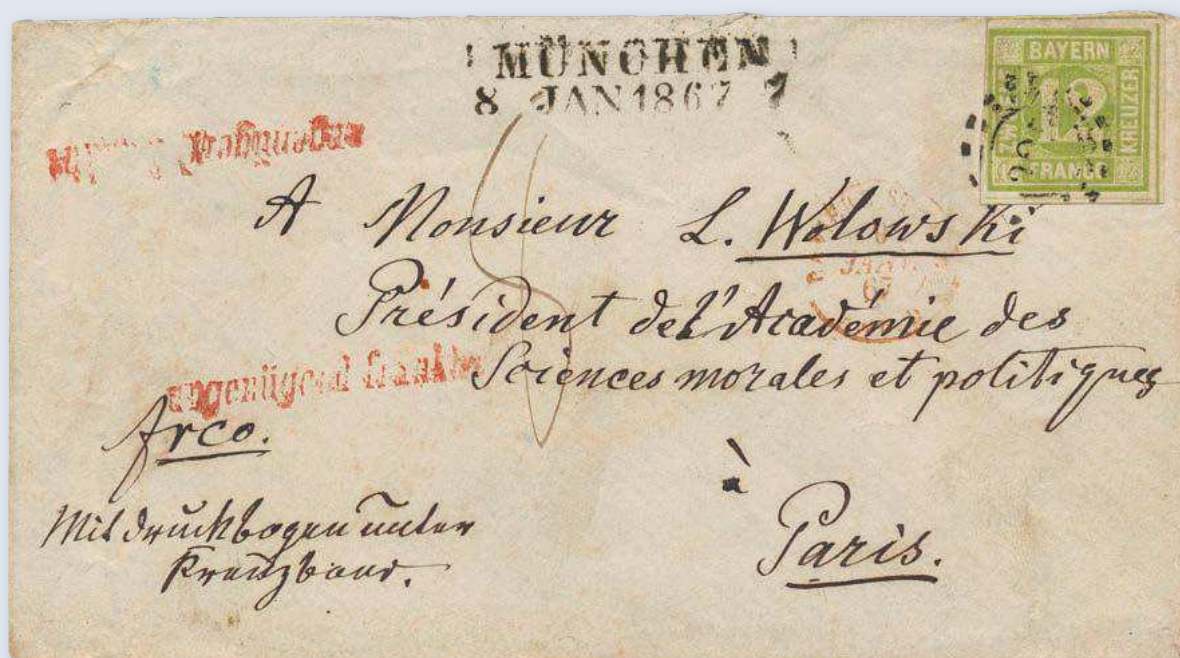 MÜNCHEN
8 JAN 1867
BAYERN
12
KREUZER
FRANCO
ungenügend
A Monsieur L. Wolowski
Président de l'Académie des
Sciences morales et politiques
ungenügend frankirt
frco.
à
Mit Druckbogen unter
Kreuzband.
Paris.